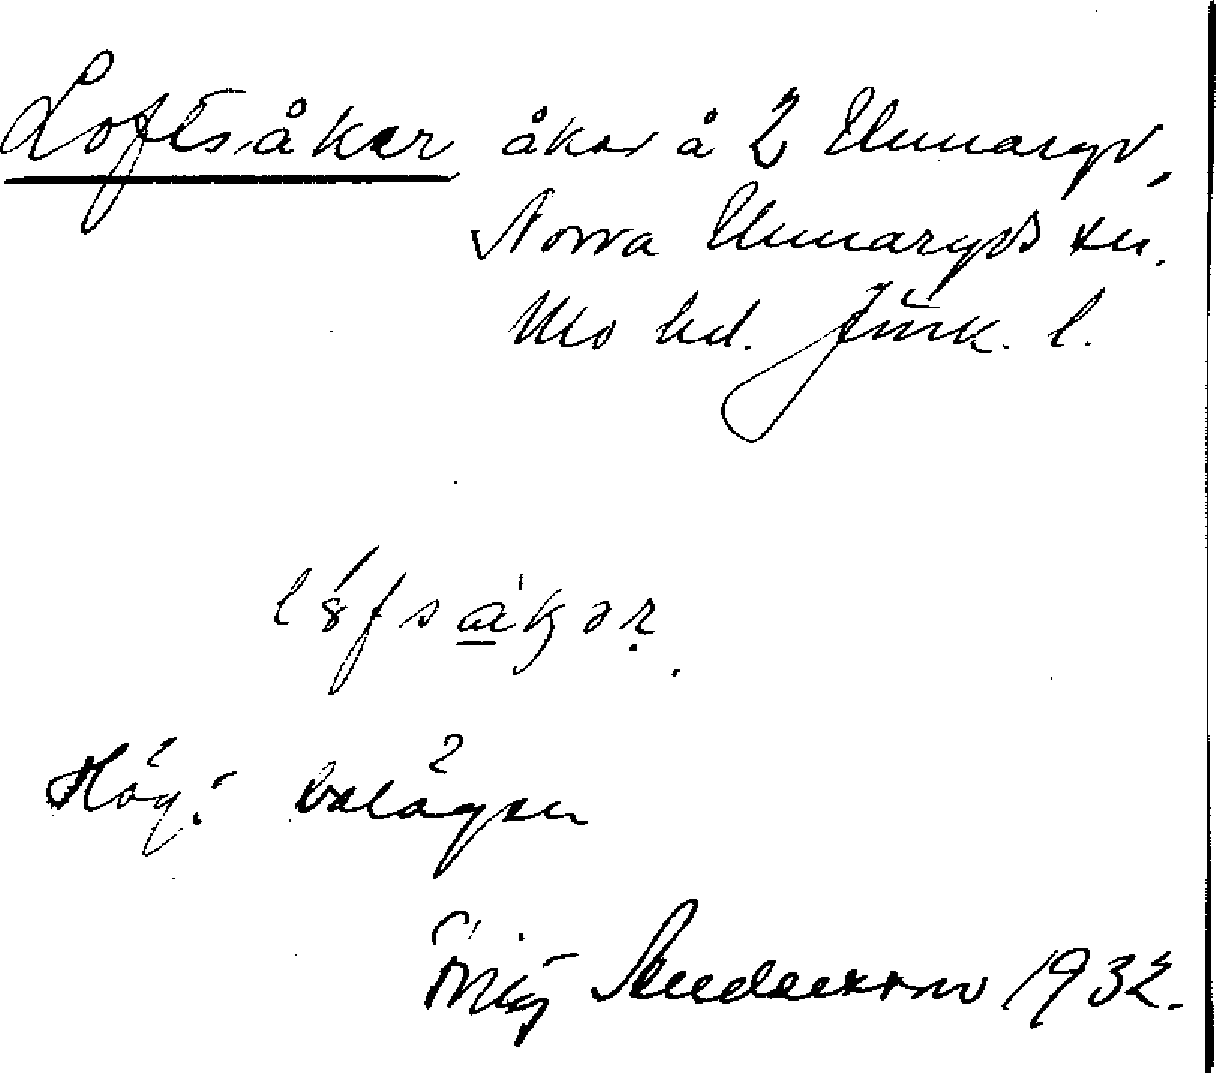 Loftsåker åker å 2 Unnaryd,
Norra Unnaryds sn.
Mo hd. Jönk. l.
Högt belägen
Stig Andersson 1932.